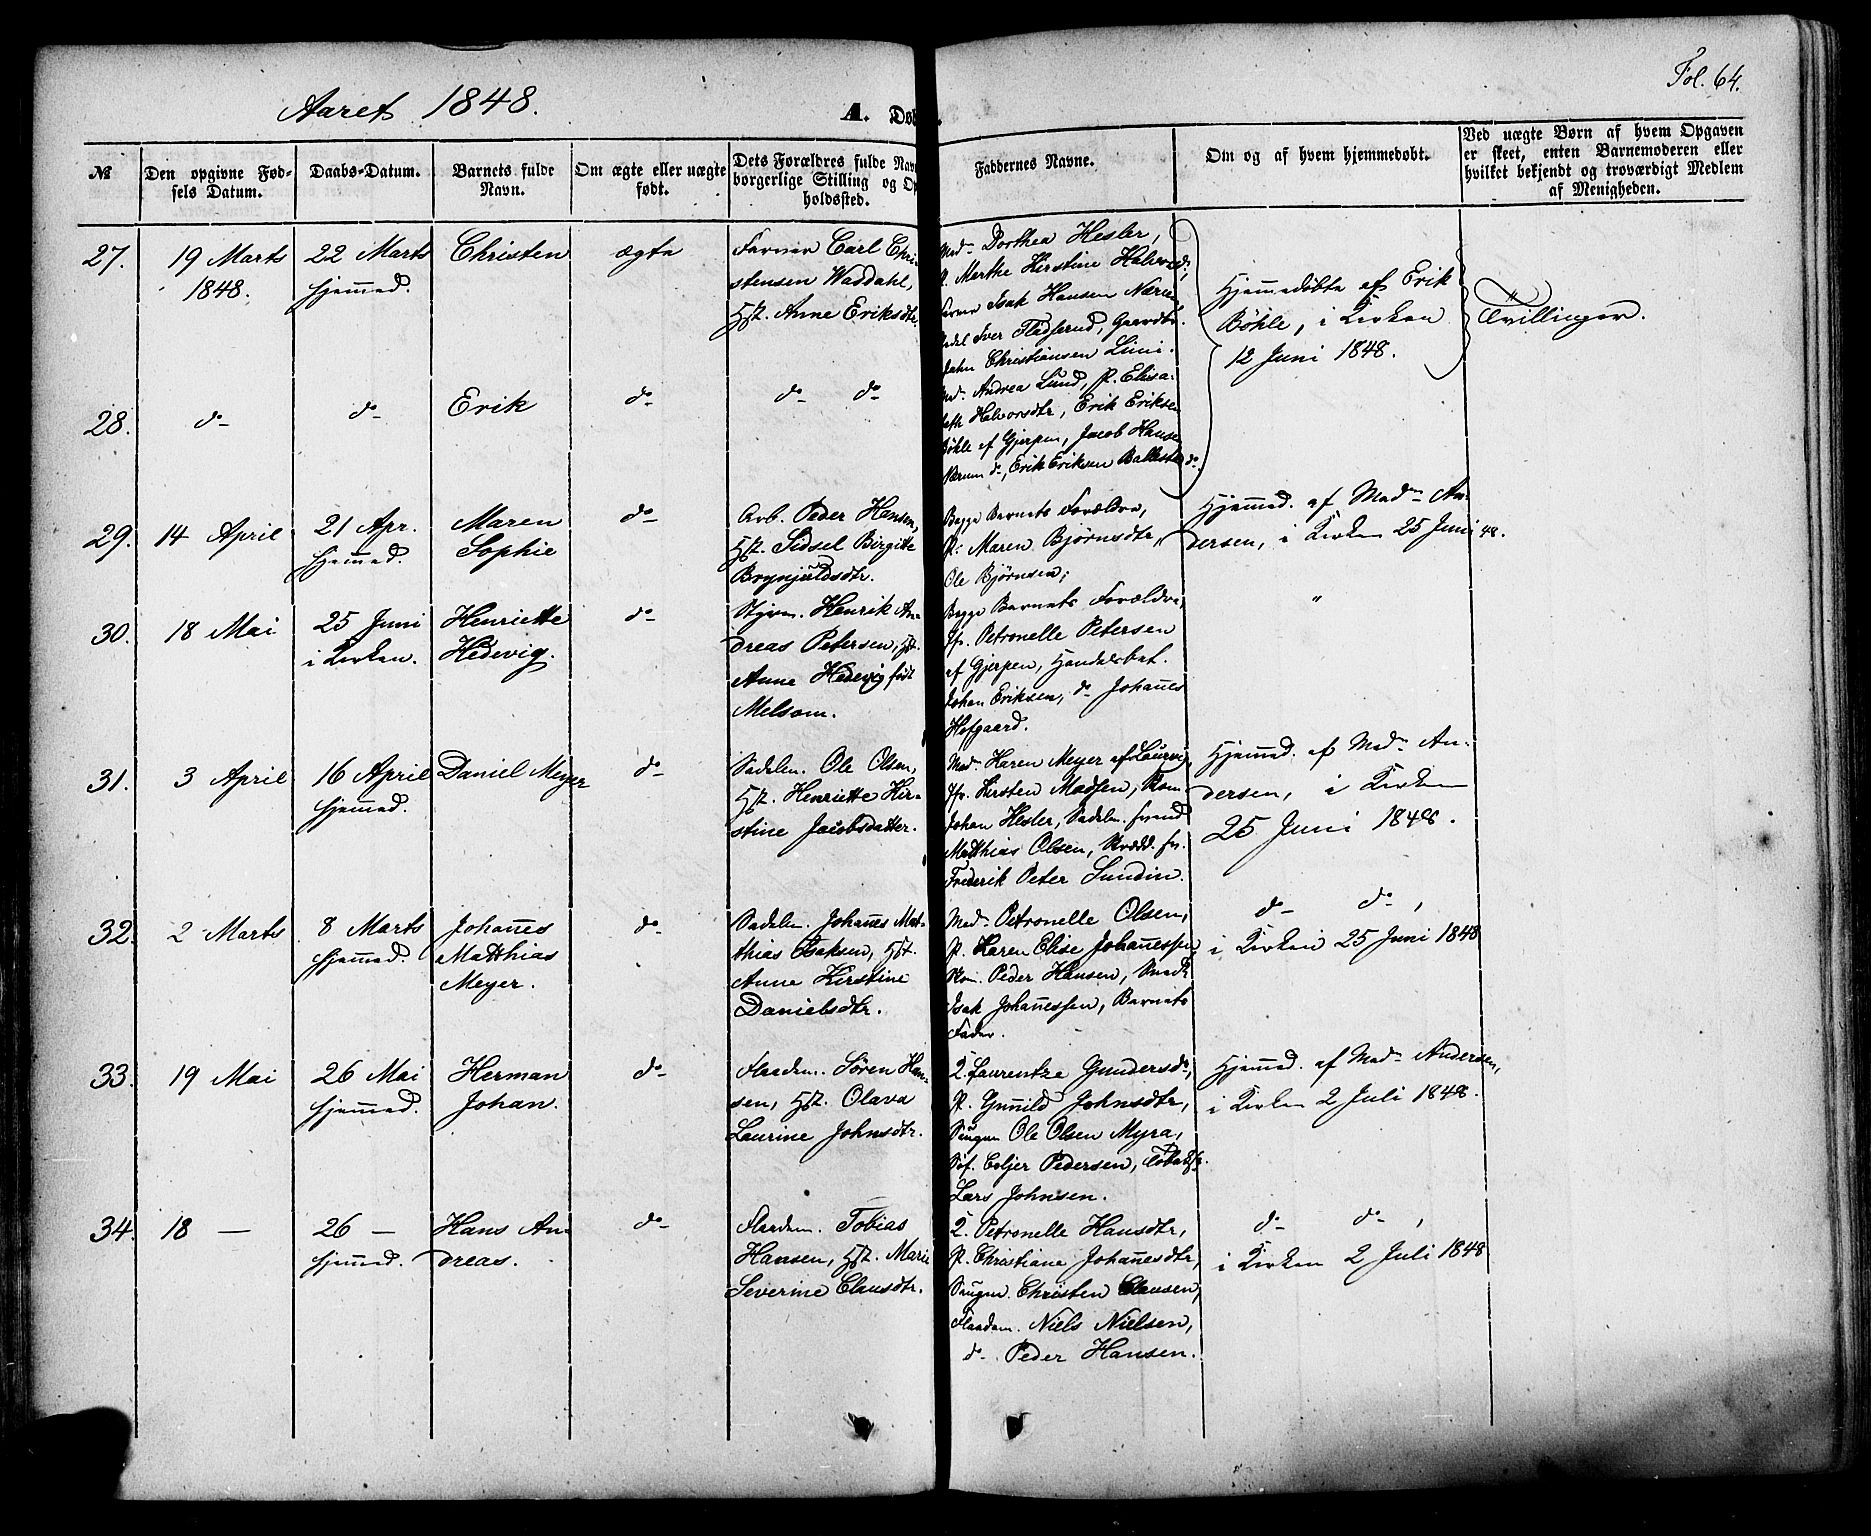 Fol. 64.
Aaret 1848.
A. Døb
№
Den opgivne Fød-
sels Datum.
Daabs-Datum.
Barnets fulde
Navn.
Om ægte eller uægte
født.
Dets Forældres fulde Nav
borgerlige Stilling og Op
holdssted.
Faddernes Navne.
Om og af hvem hjemmedøbt.
Ved uægte Børn af hvem Opgaven
er skeet, enten Barnemoderen eller
hvilket bekjendt og troværdigt Medlem
af Menigheden.
27.
19 Marts
1848.
22 Marts
hjemmed.
Christen
ægte
Farver Carl Chri
stensen Waddahl,
Hst. Anne Eriksdtr.
Md. Dorthea Hesler,
P. Marthe Kirstine Halvord.,
Farver Isak Hansen
Iver
John Christiansen Limi.
Hjemmedøbte af Erik
Böhle, i Kirken
12 Juni 1848.
Tvillinger.
28.
do
do
Erik
do
do do
Md. Andrea Lund, P. Elisa-
beth Halvorsdtr, Erik Eriksen
Böhle af Gjerpen, Jacob Hansen
do, Erik Eriksen do.
29.
14 April
21 Apr.
hjemmed.
Maren
Sophie
do
Arb. Peder Hansen,
Hst. Sidsel Birgitte
Brynjuldsdtr.
Begge Barnets Forældre,
P. Maren Bjørnsdtr,
Ole Bjørnsen;
Hjemmed. af Madm An-
dersen, i Kirken 25 Juni 48.
30.
18 Mai
25 Juni
i Kirken.
Henriette
Hedevig.
do
Styrm. Henrik An-
dreas Petersen, Hst.
Anne Hedevig født
Melsom.
Begge Barnets Forældre,
Jfr. Petronelle Petersen
af Gjerpen, Handelsbet.
Johan Eriksen, do Johannes
Hofgaard.
"
31.
3 April
16 April
hjemmed.
Daniel Meyer
do
Sadelm. Ole Olsen,
Hst. Henriette Kir-
stine Jacobsdatter.
Md. Karen Meyer af Laurvig,
Jfr. Kirsten Madsen, Skom.
Johan Hesler, Sadelm. svend
Matthias Olsen, Skrædd. sv.
Frederik Peter Lundin.
Hjemmed. af Md. An-
dersen, i Kirken
25 Juni 1848.
32.
2 Marts
8 Marts
hjemmed.
Johannes
Matthias
Meyer.
do
Sadelm. Johannes Mat-
thias Isaksen, Hst.
Anne Kirstine
Danielsdtr.
Md. Petronelle Olsen,
P. Karen Elise Johannessen,
Skom. Peder Hansen, Snedk.
Isak Johannessen, Barnets
Fader.
do do,
i Kirken 25 Juni 1848
33.
19 Mai
26 Mai
hjemmed.
Herman
Johan.
do
Flaadem. Søren Han-
sen, Hst. Olava
Laurine Johnsdtr.
Q. Laurentze Gundersd.,
P. Gunild Johnsdtr,
Saugm Ole Olsen Myra,
Søf. Peder­sen,
Lars Johnsen.
Hjemmed. af Md. Andersen,
i Kirken 2 Juli 1848.
34.
18 —
26 —
hjemmed.
Hans An
dreas.
do
Flaadem. Tobias
Hansen, Hst. Marie
Severine Clausdtr.
Q. Petronelle Hansdtr,
P. Christiane Johannesdtr,
Saugm. Christen Clausen,
Flaadem. Niels Nielsen,
do Peder Hansen.
do do,
i Kirken 2 Juli 1848